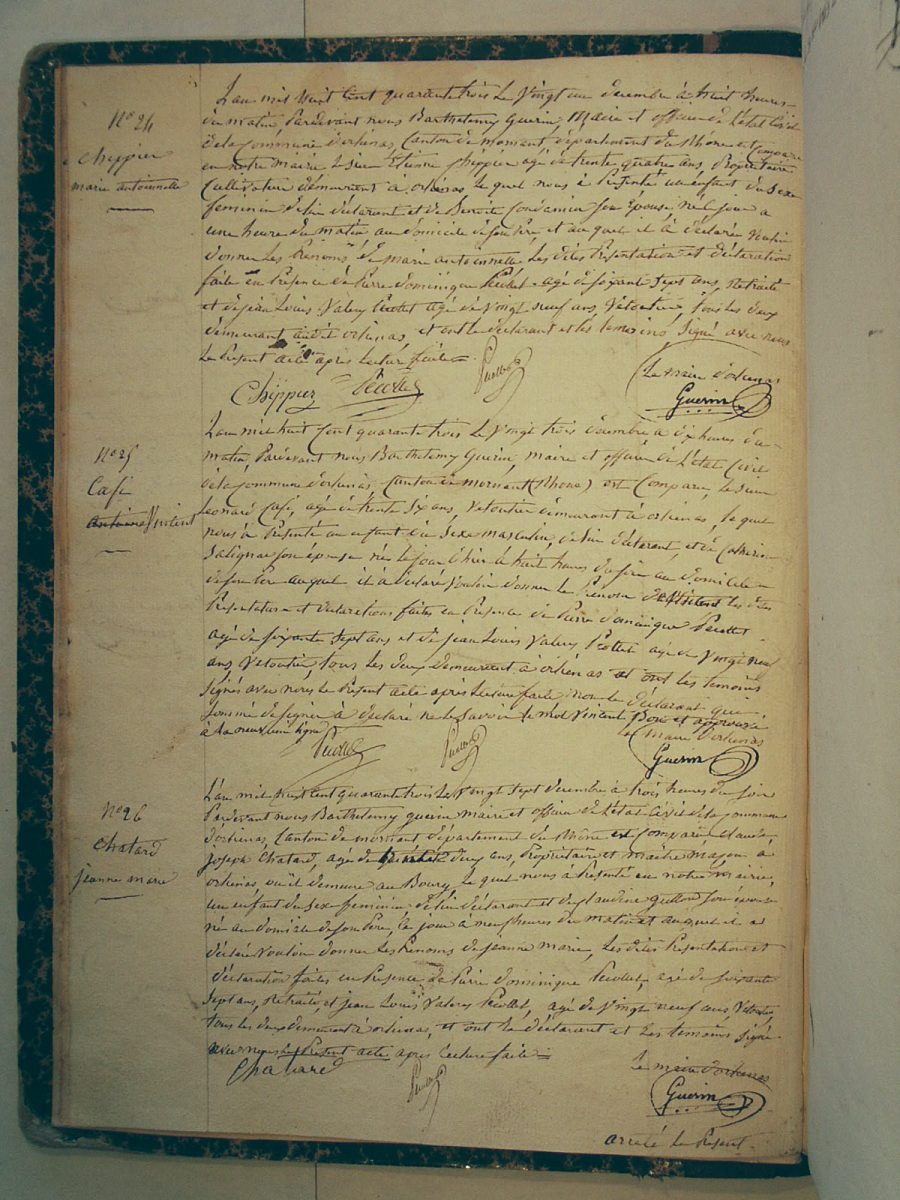 N° 24
Chippier
marie antoinette
L'an mil huit Cent quarante trois Le Vingt un decembre à huit heures
du matin, Pardevant nous Barthelemy Guerin, Maire et officier de L'état Civil
de la Commune d'orlienas, Canton de mornant, département du Rhône est Comparu
en notre mairie Le sieur Etienne Chippier agé de trente quatre ans, Propriétaire
Cultivateur demeurant à orlienas Le quel nous à Présenté un enfant du Sexe
feminin de lui déclarant et de Benoite son épouse, né Ce jour a
une heure du matin au domicile de son Père et au quel il à déclaré Vouloir
donner Les Prénoms de marie antoinette Les dites Présentation et déclaration
faite en Présence de Pierre dominique Pécollet agé de soixante Sept ans, Retraité
et de jean Louis Valery Pécollet agé de Vingt neuf ans, Veloutier, tous Les deux
demeurant audit orlienas, et ont Le déclarant et les temoins, Signé avec nous
Le Présent acte après Lecture faite
Chippier
Le maire d'orlienas
Guerin
N° 25
Café
antoine Vincent
L'an mil huit Cent quarante trois Le Vingt trois decembre a dix heures du
matin, Pardevant nous Barthelemy Guerin, maire et officier de L'état Civil
de la Commune d'orlienas, Canton de mornant (Rhône) est Comparu, Le sieur
Leonard Café, agé de trente Six ans, Veloutier demeurant à orlienas, le quel
nous à Présenté un enfant du Sexe masculin, de lui déclarant, et de Catherine
Salignac son épouse né le jour d'hier à huit heures du soir au domicile
de son Pere auquel il à déclaré Vouloir donner Le Prénom de Les dites
Présentation et declarations faites en Présence de Pierre dominique Pecollet
agé de soixante Sept ans et de jean Louis Valery Pecollet agé de Vingt neuf
ans, Veloutier, tous Les deux demeurant à orlienas et ont les temoins
Signés avec nous Le Présent acte après Lecture faite non le déclarant qui
Sommé de signer à déclaré ne le Savoir le mot Vincent Bon et approuvé
à la neuvième ligne
Le maire d'orlienas
Guerin
N° 26
Chatard
jeanne marie
L'an mil huit Cent quarante trois Le Vingt Sept decembre à trois heures du soir
Pardevant nous Barthelemy Guerin maire et officier de L'état Civil de la Commune
d'orlienas, Canton de mornant département du Rhône est Comparu Claude
Joseph Chatard, agé de deux ans, Propriétaire et maître maçon à
orlienas, où il demeure au Bourg, Le quel nous a Présenté en notre mairie,
un enfant du Sexe feminin de lui déclarant et de Claudine Guillon son épouse
né au domicile de son Père, Ce jour à neuf heures du matin et auquel il a
déclaré Vouloir donner Les Prénoms de jeanne marie, Les dites Présentation et
déclaration faites en Présence de Pierre dominique Pécollet, agé de soixante
Sept ans, Retraité, et jean Louis Valery Pécollet, agé de Vingt neuf ans, Veloutier,
tous Les deux demeurant à orlienas, et ont Le déclarant et Les temoins Signé
avec nous Le Présent acte après Lecture faite
Chatard
Le maire d'orlienas
Guerin
arrêté le Présent